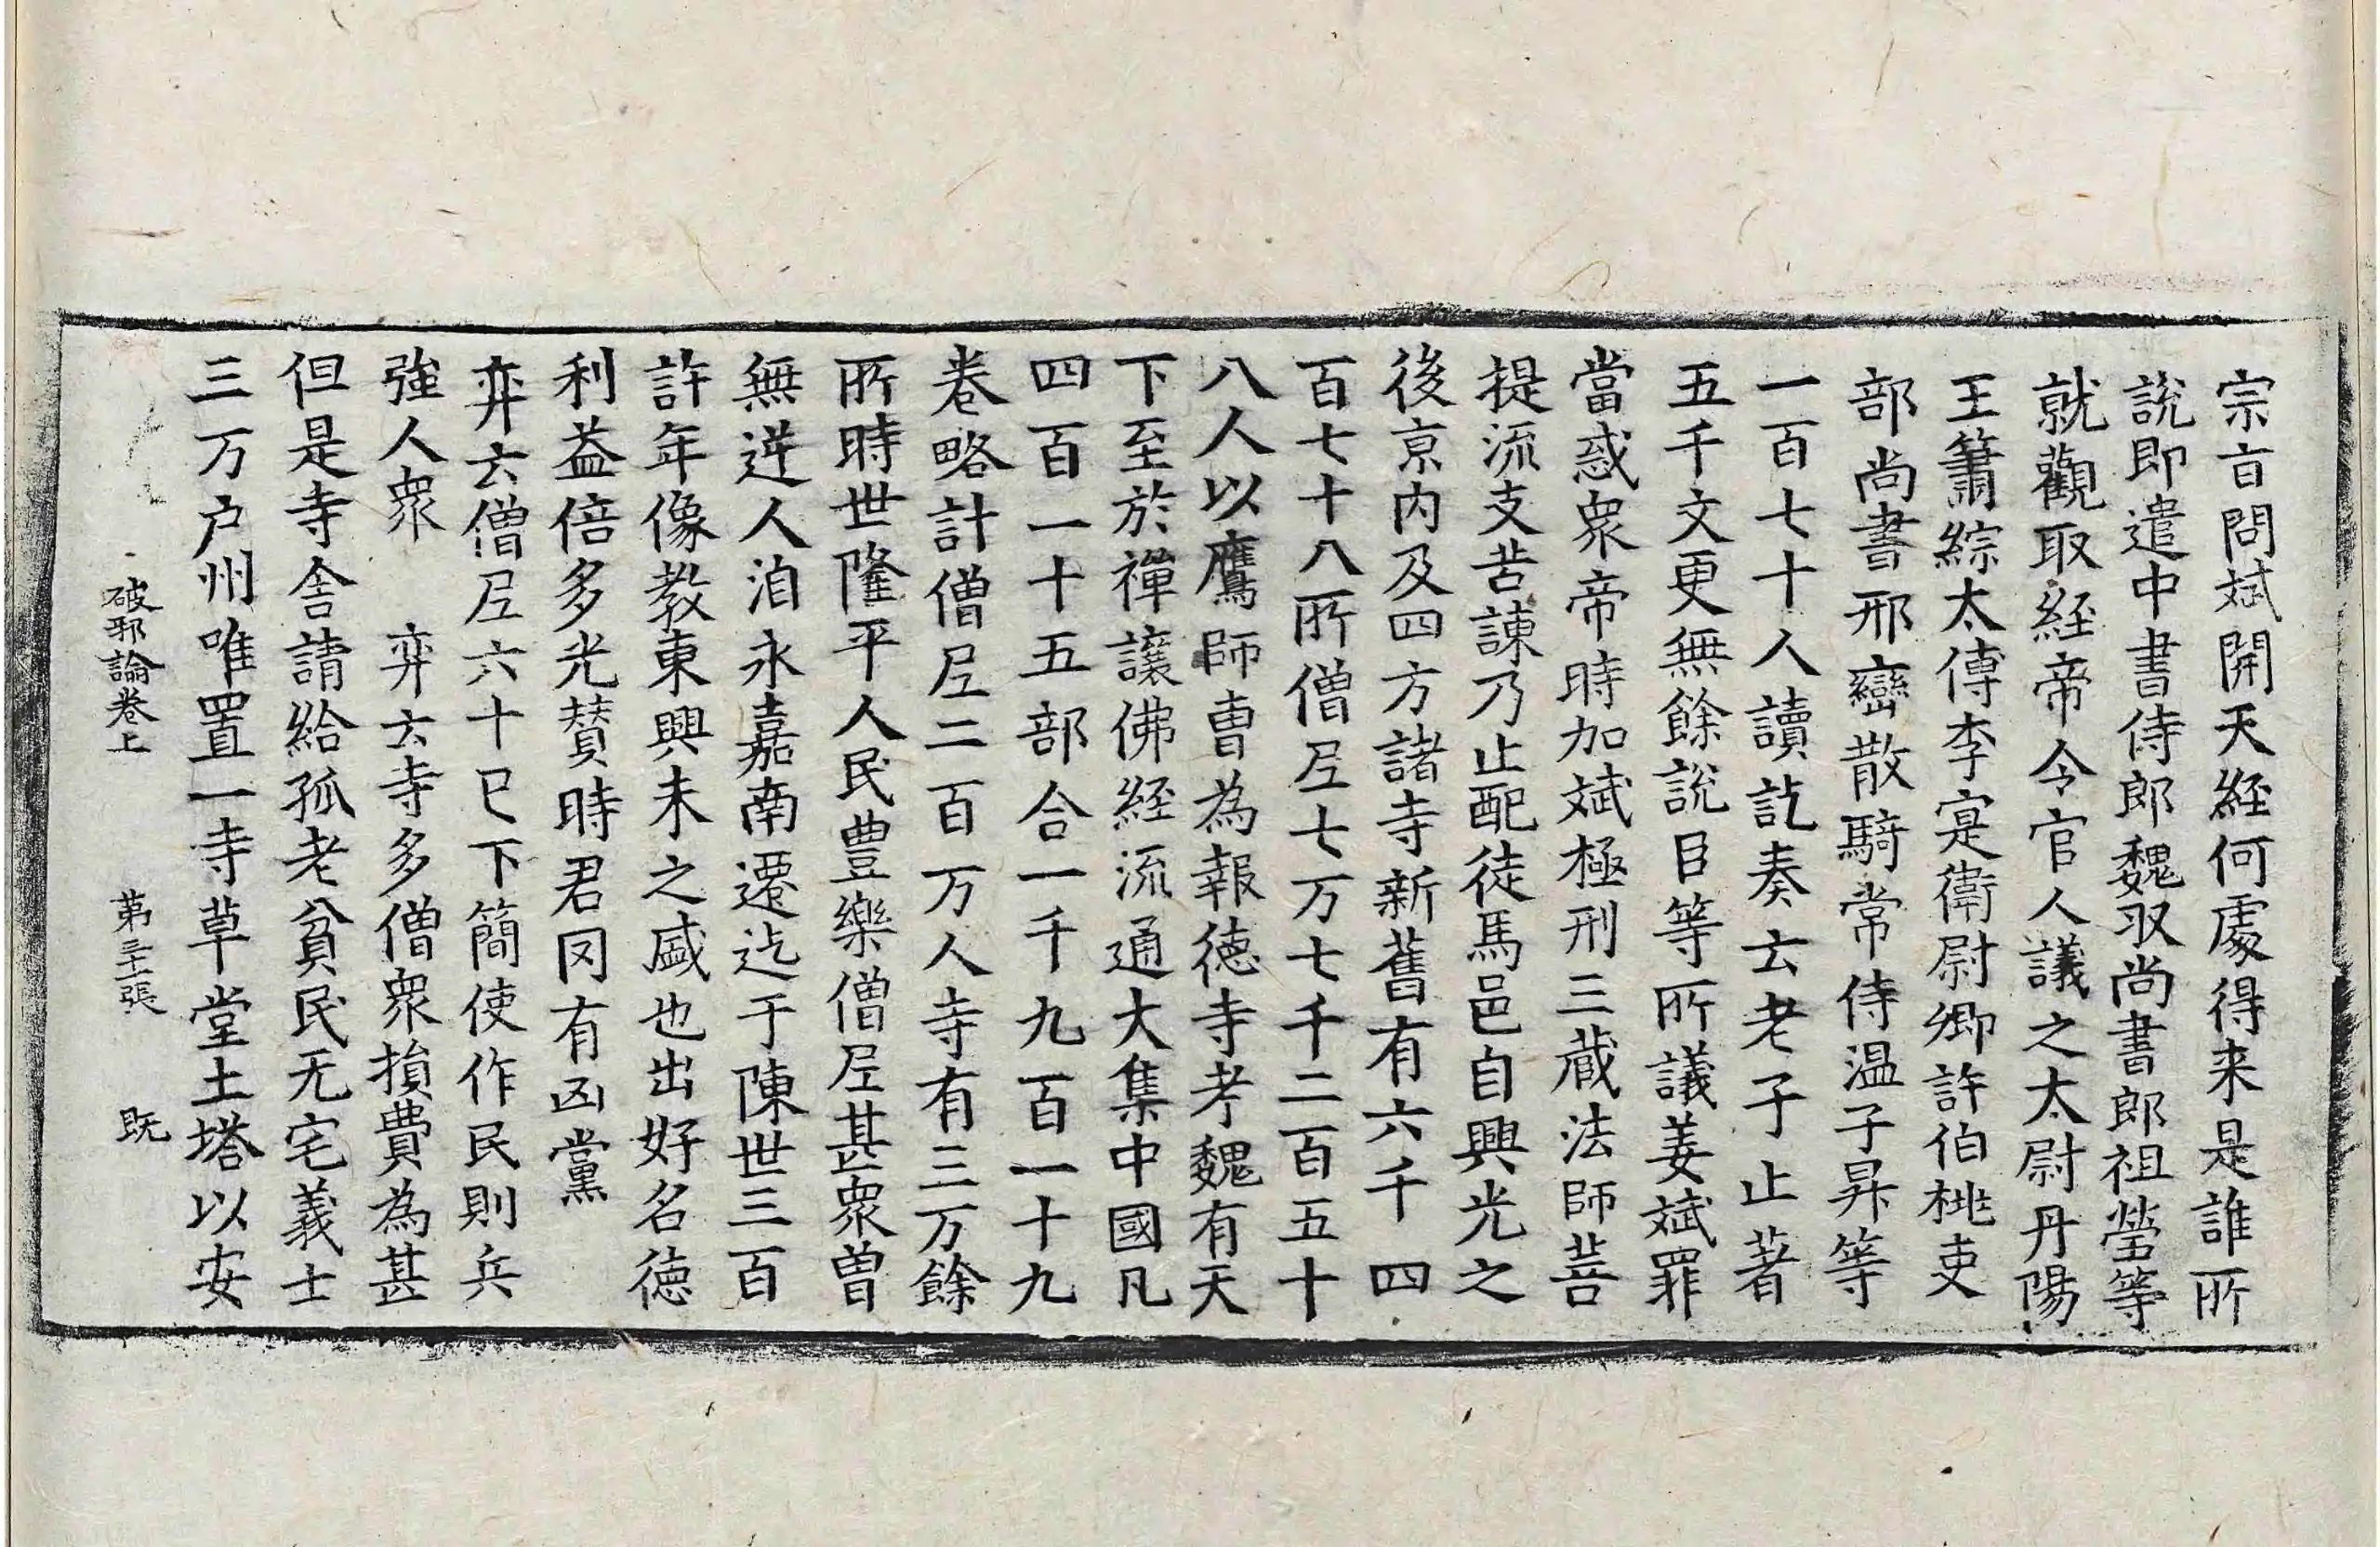 宗旨問斌開天經何處得来是誰所
說即遣中書侍郎魏収尚書郎祖瑩等
就觀取経帝令官人議之太尉丹陽
王簫綜太傅李寔衛尉卿許伯桃吏
部尚書邢巒散騎常侍温子昇等
一百七十人讀訖奏云老子止著
五千文更無餘說臣等所議姜斌罪
當惑衆帝時加斌極刑三蔵法師菩
提流支苦諫乃止配徒馬邑自興光之
後京内及四方諸寺新舊有六千四
百七十八所僧尼七万七千二百五十
八人以鷹師曺為報徳寺考魏有天
下至於禪讓佛経流通大集中國凡
四百一十五部合一千九百一十九
卷略計僧尼二百万人寺有三万餘
所時世隆平人民豊樂僧尼甚衆曽
無逆人洎永嘉南遷迄于陳世三百
許年像教東興未之盛也出好名徳
利益倍多光賛時君冈有凶黨
弈云僧尼六十已下簡使作民則兵
強人衆　弈云寺多僧衆損費為甚
但是寺舎請給孤老貧民无宅義士
三万户州唯置一寺草堂土塔以安
破邪論卷上　第三十二張　既